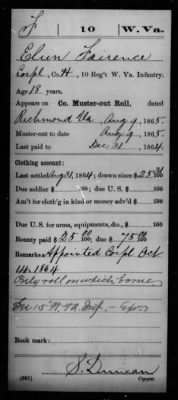 F | 10 | W. Va.
Elun Fairence
Corpl., Co. H, 10 Reg't W. Va. Infantry.
Age 18 years.
Appears on Co. Muster-out Roll, dated
Richmond Va Aug 9, 1865.
Muster-out to date Aug 9, 1865.
Last paid to Dec 31, 1864.
Clothing account:
Last settled Aug 31, 1864; drawn since $ 25 76/100
Due soldier $ /100; due U. S. $ /100
Am't for cloth'g in kind or money adv'd $ /100
Due U. S. for arms, equipments, &c., $ /100
Bounty paid $ 25 00/100; due $ 75 00/100
Remarks: Appointed Corpl Oct
14. 1864
Only roll on which borne
Book mark:
S. Duncan
(861) Copyist.